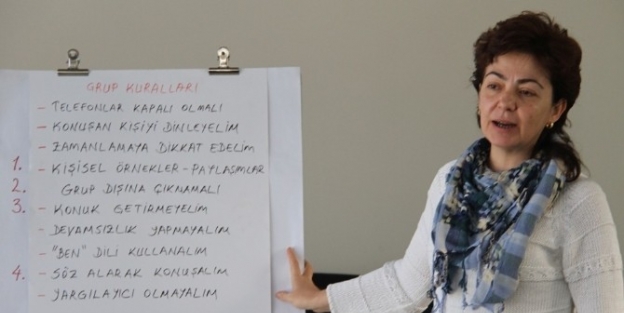 GRUP KURALLARI
- TELEFONLAR KAPALI OLMALI
- KONUŞAN KİŞİYİ DİNLEYELİM
- ZAMANLAMAYA DİKKAT EDELİM
1. - KİŞİSEL ÖRNEKLER - PAYLAŞIMLAR
2. GRUP DIŞINA ÇIKMAMALI
3. - KONUK GETİRMEYELİM
- DEVAMSIZLIK YAPMAYALIM
- "BEN" DİLİ KULLANALIM
4. - SÖZ ALARAK KONUŞALIM
- YARGILAYICI OLMAYALIM